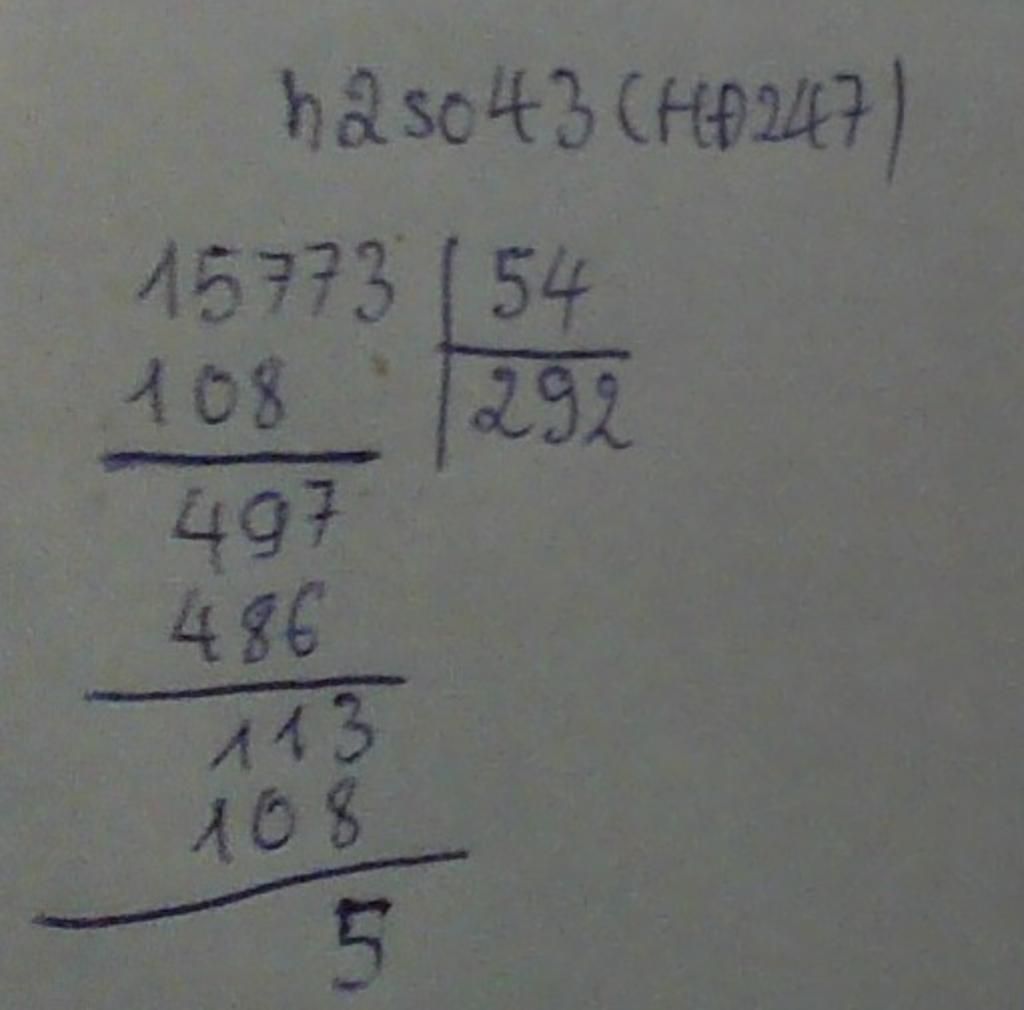 h2so43 (HĐ247)
15773 | 54
108 | 292
497
486
113
108
5